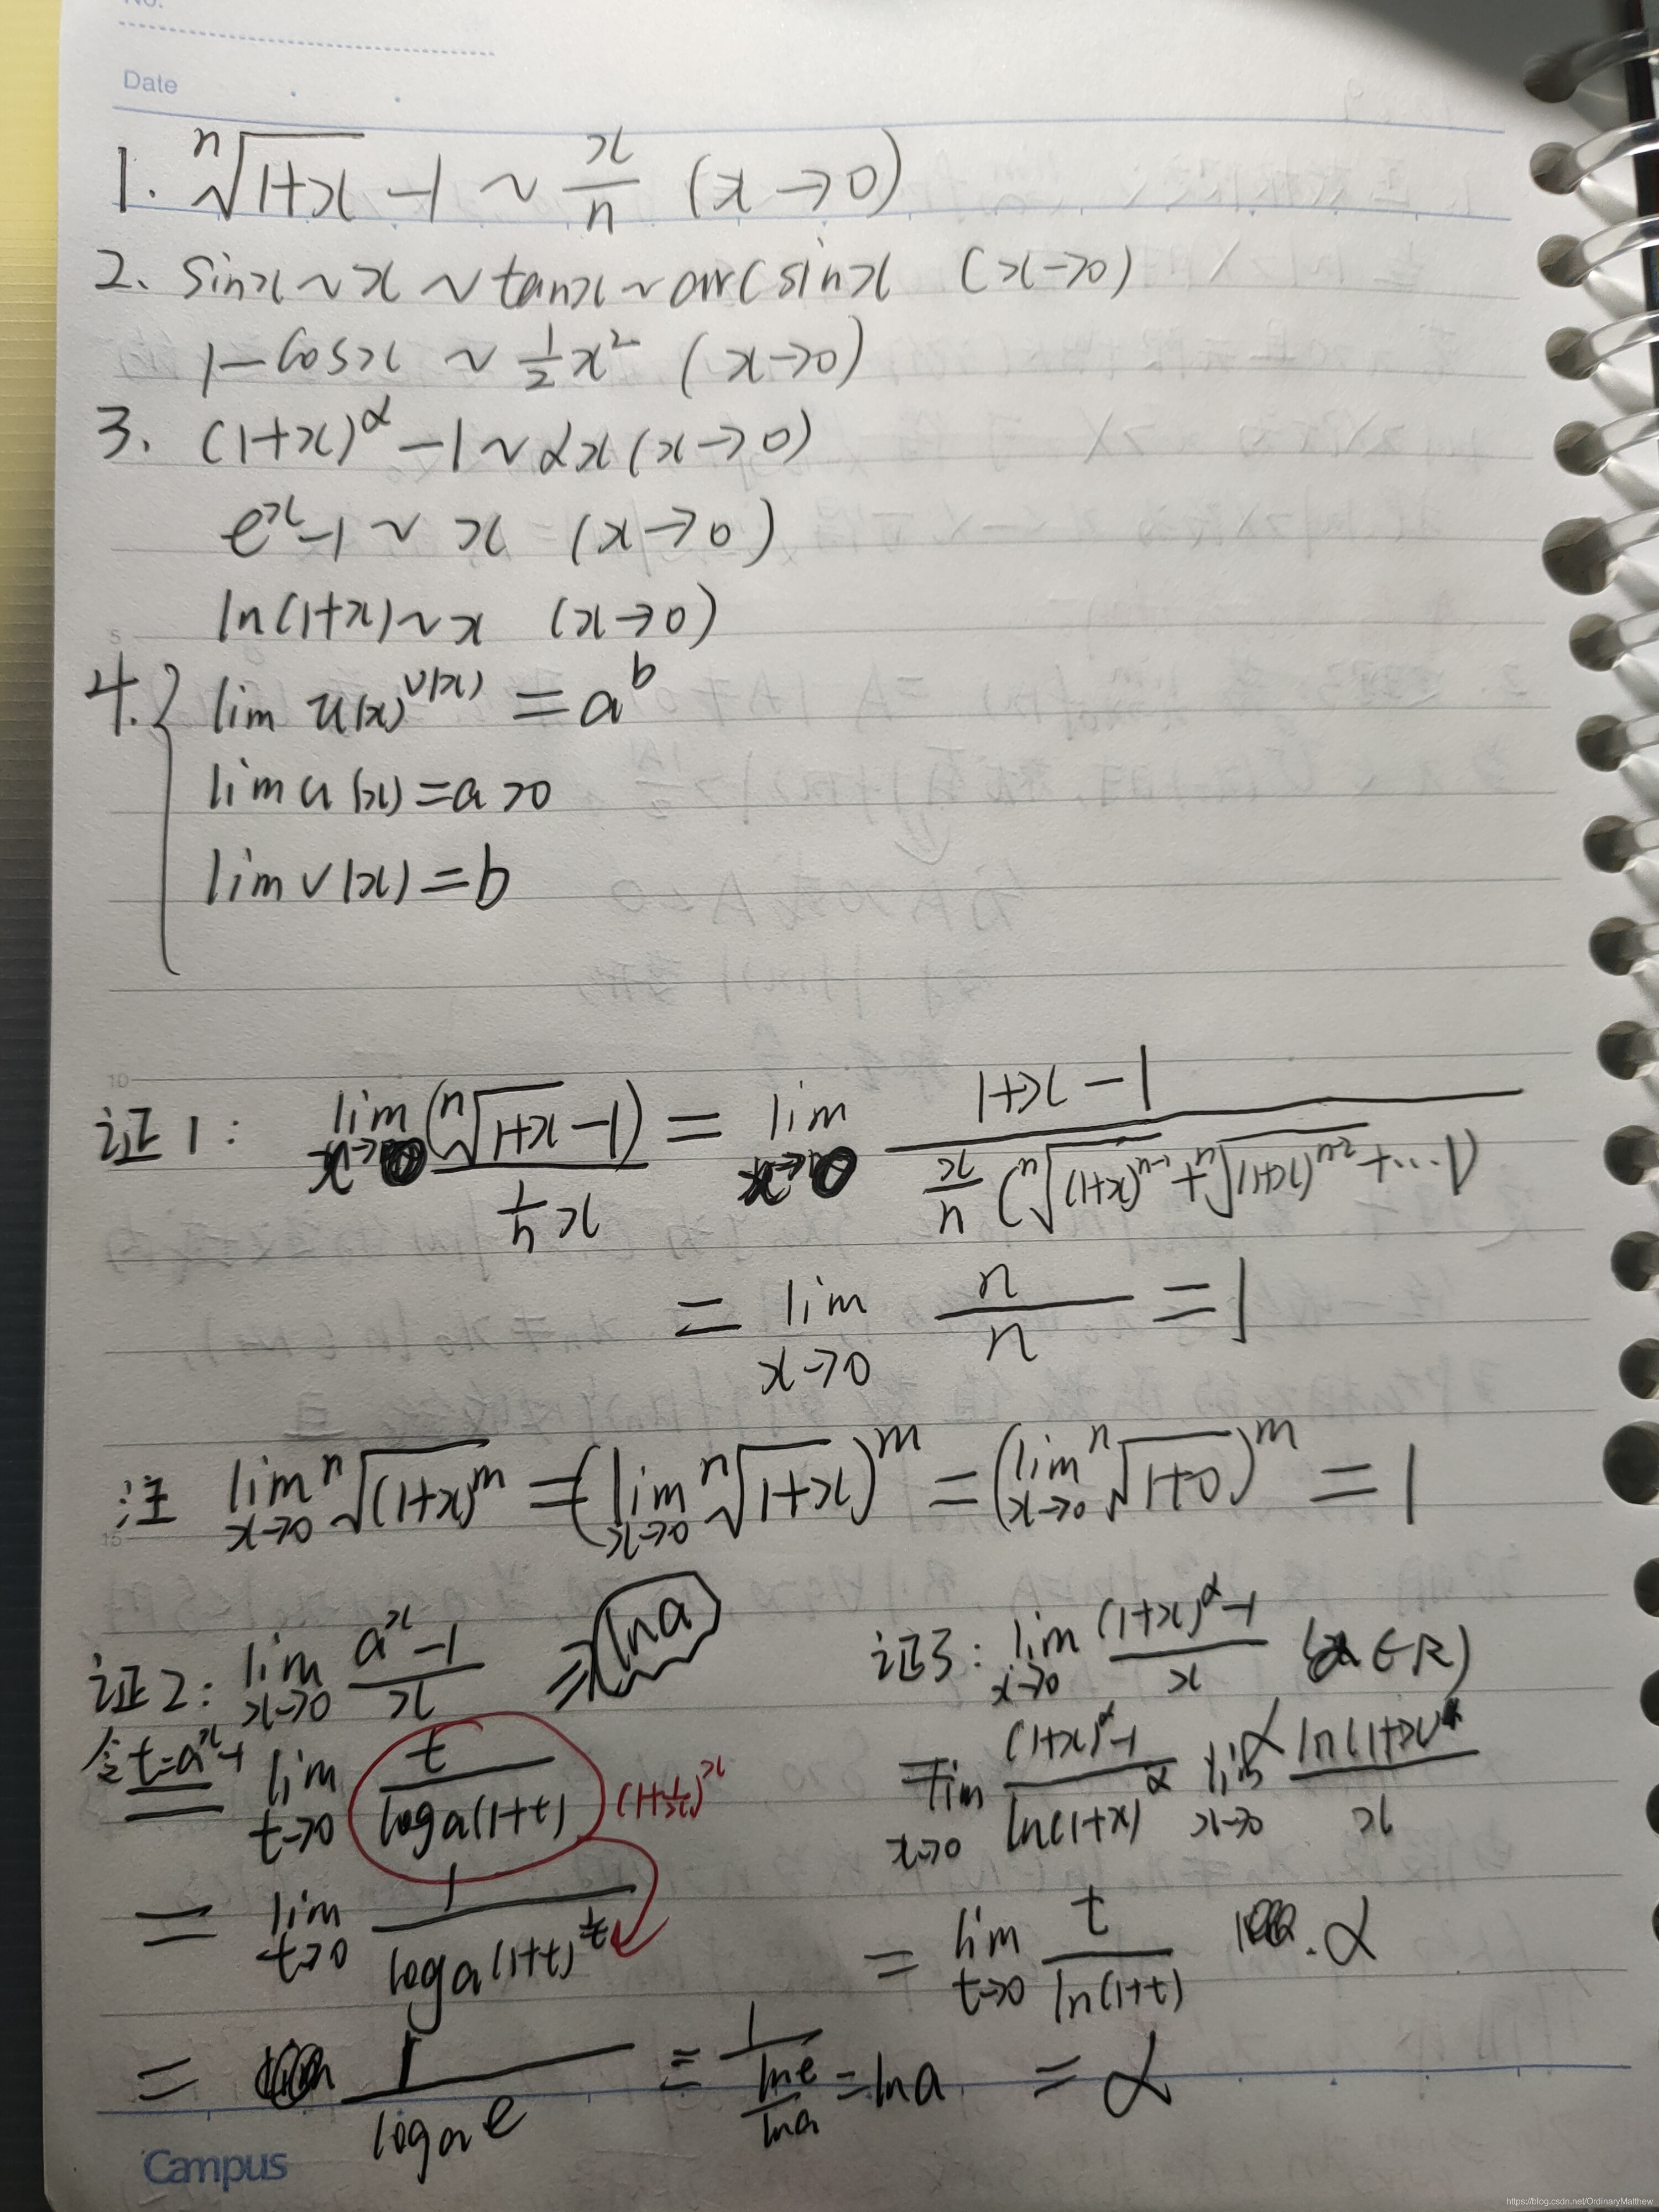 No.
Date
1. ⁿ√(1+x) −1 ~ x/n (x→0)
2. sinx ~ x ~ tanx ~ arcsinx (x→0)
1−cosx ~ 1/2 x² (x→0)
3. (1+x)^α −1 ~ αx (x→0)
e^x −1 ~ x (x→0)
5
ln(1+x) ~ x (x→0)
4. { lim u(x)^v(x) = a^b
lim u(x) = a>0
lim v(x) = b
10
证1: lim x→0 (ⁿ√(1+x) −1) / (1/n x) = lim x→0 (1+x−1) / (x/n (ⁿ√(1+x)^(n-1) + ⁿ√(1+x)^(n-2) + ... 1)
= lim x→0 n/n = 1
注 lim x→0 ⁿ√(1+x)^m = (lim x→0 ⁿ√(1+x))^m = (lim x→0 ⁿ√(1+0))^m = 1
15
证2: lim x→0 (a^x −1)/x = lna
令t=a^x−1 = lim t→0 t / loga(1+t)
= lim t→0 1 / loga(1+t)^(1/t)
= 1 / logae = 1 / (lne/lna) = lna
证3: lim x→0 ((1+x)^α −1)/x ∈R)
= lim x→0 ((1+x)^α −1) / ln(1+x)^α lim x→0 α ln(1+x) / x
= lim t→0 t / ln(1+t) · α
= α
Campus
https://blog.csdn.net/OrdinaryMatthew